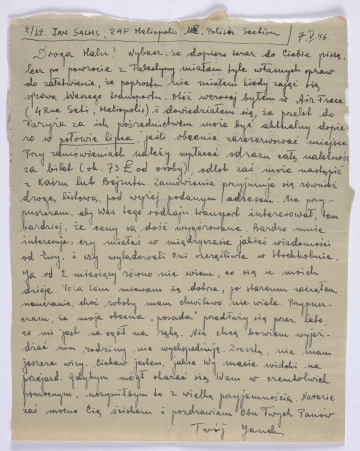 2/Lt. JAN SACHS RAF Heliopolis ME. Polish Section / 7.V.46.
Droga Halu! Wybacz, że dopiero teraz do Ciebie piszę,
lecz po powrocie z Palestyny miałem tyle własnych spraw
do załatwienia, że poprostu nie miałem kiedy zająć się
sprawą Waszego transportu. Otóż wczoraj byłem w Air France
(4 Rue Seti, Heliopolis) i dowiedziałem się, że przelot do
Paryża za ich pośrednictwem może być aktualny dopie-
ro w połowie lipca, jeśli obecnie zarezerwować miejsca.
Przy zamówieniach należy wpłacać odrazu całą należność
za bilet (ok. 73 £ od osoby), odlot zaś może nastąpić
z Kairu lub Bejrutu. Zamówienia przyjmują się również
drogą listową, pod wyżej podanym adresem. Nie przy-
puszczam, aby Was tego rodzaju transport interesował, tem
bardziej, że ceny są dość wygórowane. Bardzo mnie
interesuje, czy miałaś w międzyczasie jakieś wiadomości
od Żuwy, i czy wylądowali Oni szczęśliwie w Stockholmie.
Ja od 2 miesięcy równo nie wiem, co się u moich
dzieje. Poza tem miewam się dobrze, po staremu zacząłem
naukę, choć roboty mam chwilowo nie wiele. Przypusz-
czam, że moja obecna posada przedłuży się przez lato,
co mi jest na ogół na rękę. Nie chcę bowiem wyjeż-
dżać nim rodziny nie wyekspediuję. Zresztą, nie mam
jeszcze wizy. Ciekaw jestem, jakie Wy macie widoki na
przejazd. Gdybym mógł okazać się Wam w czemkolwiek
pomocnym, uczyniłbym to z wielką przyjemnością. Narazie
zaś mocno Cię ściskam i pozdrawiam Obu Twych Panów
Twój Janek